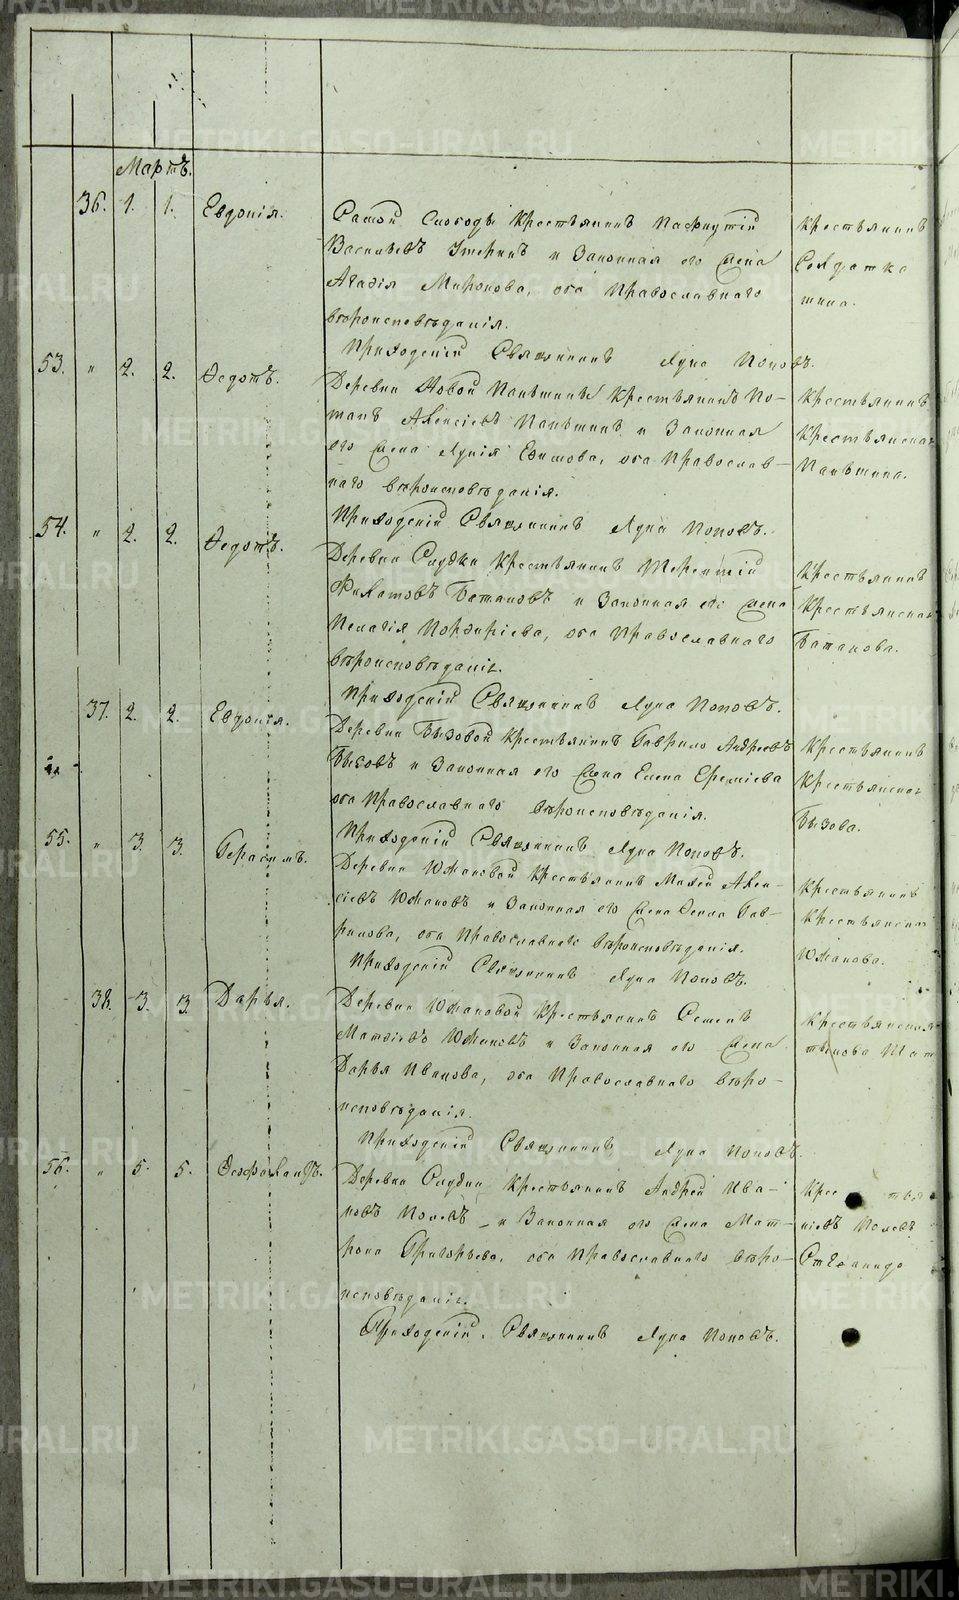 Мартъ.
36. 1. 1. Евдокія.
Самой Слободы Крестьянинъ Пафнутій
Васильевъ и Законная его Жена
Агафія Миронова, оба Православнаго
вѣроисповѣданія.
Приходскій Священникъ Лука Поповъ.
Крестьянинъ
53. " 2. 2. Ѳедотъ.
Деревни Новой Крестьянинъ По-
тапъ Алексѣевъ и Законная
его Жена Лукія Ефимова, оба Православ-
наго вѣроисповѣданія.
Приходскій Священникъ Лука Поповъ.
Крестьянинъ
Крестьянская
54. " 2. 2. Ѳедотъ.
Деревни Крестьянинъ Терентій
Филатовъ Батаковъ и Законная его Жена
Пелагія Порфиріева, оба Православнаго
вѣроисповѣданія.
Приходскій Священникъ Лука Поповъ.
Крестьянинъ
Крестьянская
Батакова.
37. 2. 2. Евдокія.
Деревни Бызовой Крестьянинъ Гаврило Андреевъ
Бызовъ и Законная его Жена Елена Еремѣева
оба Православнаго вѣроисповѣданія.
Приходскій Священникъ Лука Поповъ.
Крестьянинъ
Крестьянская
Бызова.
55. " 3. 3. Герасимъ.
Деревни Южаковой Крестьянинъ Мокей Алек-
сіевъ Южаковъ и Законная его Жена Фекла Гав-
рилова, оба Православнаго вѣроисповѣданія.
Приходскій Священникъ Лука Поповъ.
Крестьянинъ
Южакова.
38. 3. 3. Дарья.
Деревни Южаковой Крестьянинъ Семенъ
Матѳіевъ Южаковъ и Законная его Жена
Дарья Иванова, оба Православнаго вѣро-
исповѣданія.
Приходскій Священникъ Лука Поповъ.
56. " 5. 5. Ѳеофилактъ.
Деревни Крестьянинъ Андрей Ива-
новъ и Законная его Жена Мат-
рона Григорьева, оба Православнаго вѣро-
исповѣданія.
Приходскій Священникъ Лука Поповъ.
METRIKI.GASO-URAL.RU